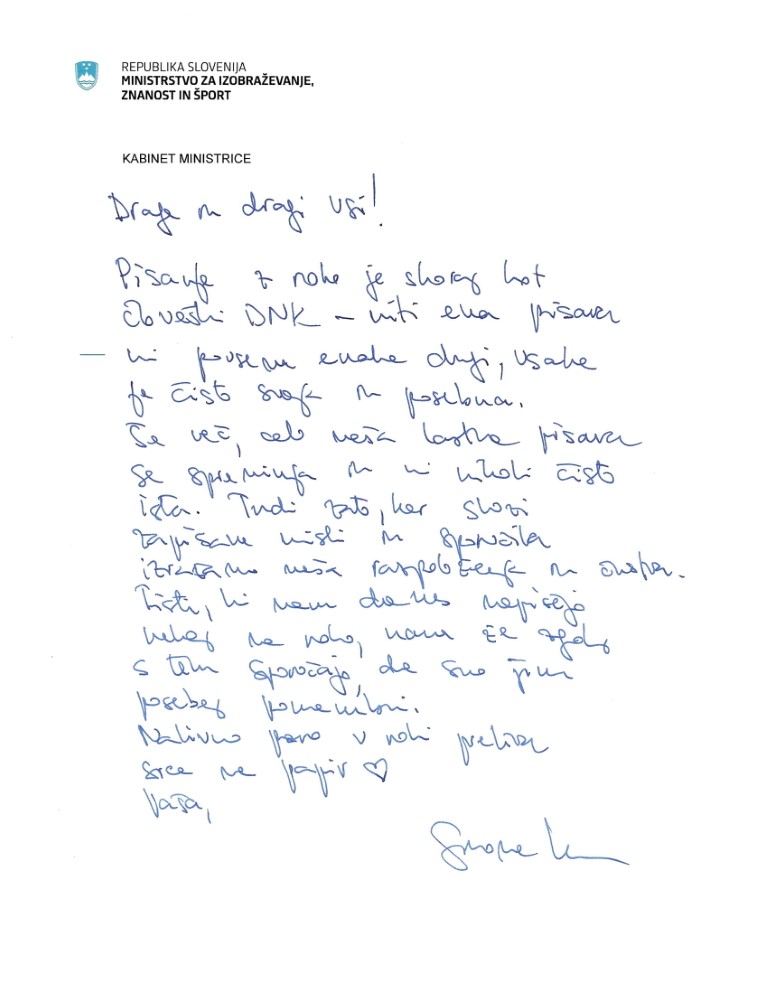 REPUBLIKA SLOVENIJA
MINISTRSTVO ZA IZOBRAŽEVANJE,
ZNANOST IN ŠPORT
KABINET MINISTRICE
Drage in dragi vsi!
Pisanje z roko je skoraj kot
človeški DNK – niti ena pisava
ni povsem enaka drugi, vsaka
je čisto svoja in posebna.
Še več, celo naša lastna pisava
se spreminja in ni nikoli čisto
ista. Tudi zato, ker skozi
zapisane misli in sporočila
izražamo naša razpoloženja in
Tisti, ki nam danes napišejo
nekaj na roko, nam že zgolj
s tem sporočajo, da smo jim
posebej pomembni.
Nalivno pero v roki preliva
srce na papir ♡
Vaša,
Simona